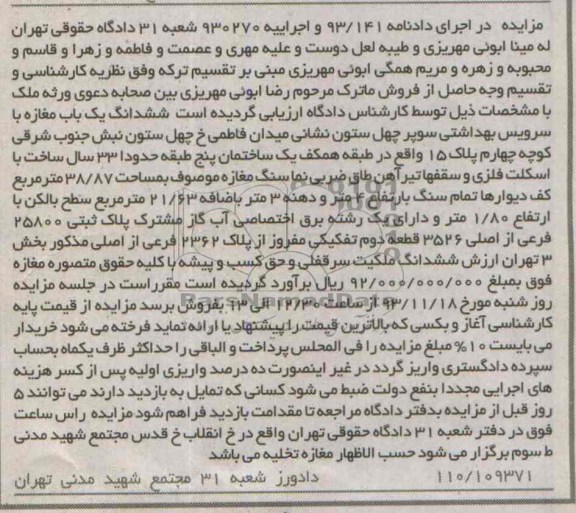 مزایده در اجرای دادنامه ۹۳/۱۴۱ و اجراییه ۹۳۰۲۷۰ شعبه ۳۱ دادگاه حقوقی تهران
له مینا ابوئی مهریزی و طیبه لعل دوست و علیه مهری و عصمت و فاطمه و زهرا و قاسم و
محبوبه و زهره و مریم همگی ابوئی مهریزی مبنی بر تقسیم ترکه وفق نظریه کارشناسی و
تقسیم وجه حاصل از فروش ماترک مرحوم رضا ابوئی مهریزی بین صحابه دعوی ورثه ملک
با مشخصات ذیل توسط کارشناس دادگاه ارزیابی گردیده است ششدانگ یک باب مغازه با
سرویس بهداشتی سوپر چهل ستون نشانی میدان فاطمی خ چهل ستون نبش جنوب شرقی
کوچه چهارم پلاک ۱۵ واقع در طبقه همکف یک ساختمان پنج طبقه حدودا ۳۳ سال ساخت با
اسکلت فلزی و سقفها تیرآهن طاق ضربی نما سنگ مغازه موصوف بمساحت ۳۸/۸۷ مترمربع
کف دیوارها تمام سنگ بارتفاع متر و دهنه ۳ متر باضافه ۲۱/۶۳ مترمربع سطح بالکن با
ارتفاع ۱/۸۰ متر و دارای یک رشته برق اختصاصی آب گاز مشترک پلاک ثبتی ۲۵۸۰۰
فرعی از اصلی ۳۵۲۶ قطعه دوم تفکیکی مفروز از پلاک ۲۳۶۲ فرعی از اصلی مذکور بخش
۳ تهران ارزش ششدانگ ملکیت سرقفلی و حق کسب و پیشه با کلیه حقوق متصوره مغازه
فوق بمبلغ ۹۲/۰۰۰/۰۰۰/۰۰۰ ریال برآورد گردیده است مقرر است در جلسه مزایده
روز شنبه مورخ ۹۳/۱۱/۱۸ از ساعت ۱۲/۳۰ الی ۱۳ بفروش برسد مزایده از قیمت پایه
کارشناسی آغاز و بکسی که بالاترین قیمت را پیشنهاد یا ارائه نماید فرخته می شود خریدار
می بایست ۱۰% مبلغ مزایده را فی المجلس پرداخت و الباقی را حداکثر ظرف یکماه بحساب
سپرده دادگستری واریز گردد در غیر اینصورت ده درصد واریزی اولیه پس از کسر هزینه
های اجرایی مجددا بنفع دولت ضبط می شود کسانی که تمایل به بازدید دارند می توانند ۵
روز قبل از مزایده بدفتر دادگاه مراجعه تا مقدامت بازدید فراهم شود مزایده راس ساعت
فوق در دفتر شعبه ۳۱ دادگاه حقوقی تهران واقع در خ انقلاب خ قدس مجتمع شهید مدنی
ط سوم برگزار می شود حسب الاظهار مغازه تخلیه می باشد
۱۱۰/۱۰۹۳۷۱ دادورز شعبه ۳۱ مجتمع شهید مدنی تهران